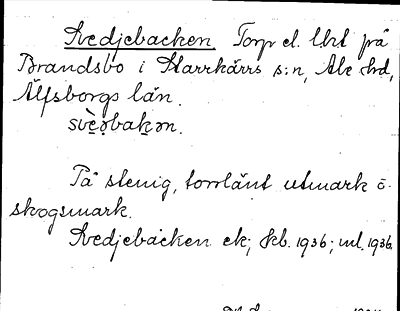 Svedjebacken Torp el. lht på
Brandsbo i Starrkärrs s:n, Ale hd,
Älfsborgs län.
svèəbakən.
På stenig, torrlänt utmark o.
skogsmark.
Svedjebacken ek; Jkb. 1936; ml. 1936.